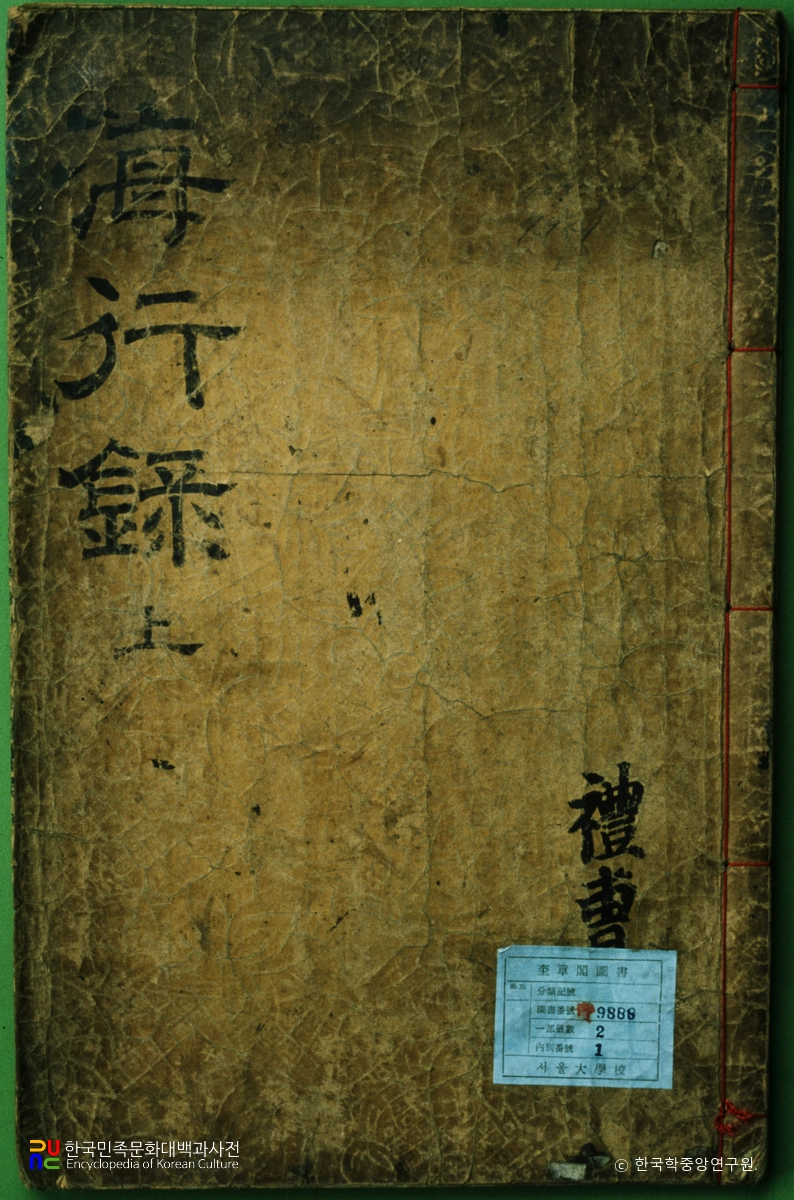 海行錄
上
禮書
奎章閣圖書
分類記號
圖書番號 9888
一部冊數 2
內別番號 1
서울大學校
한국민족문화대백과사전
Encyclopedia of Korean Culture
© 한국학중앙연구원.